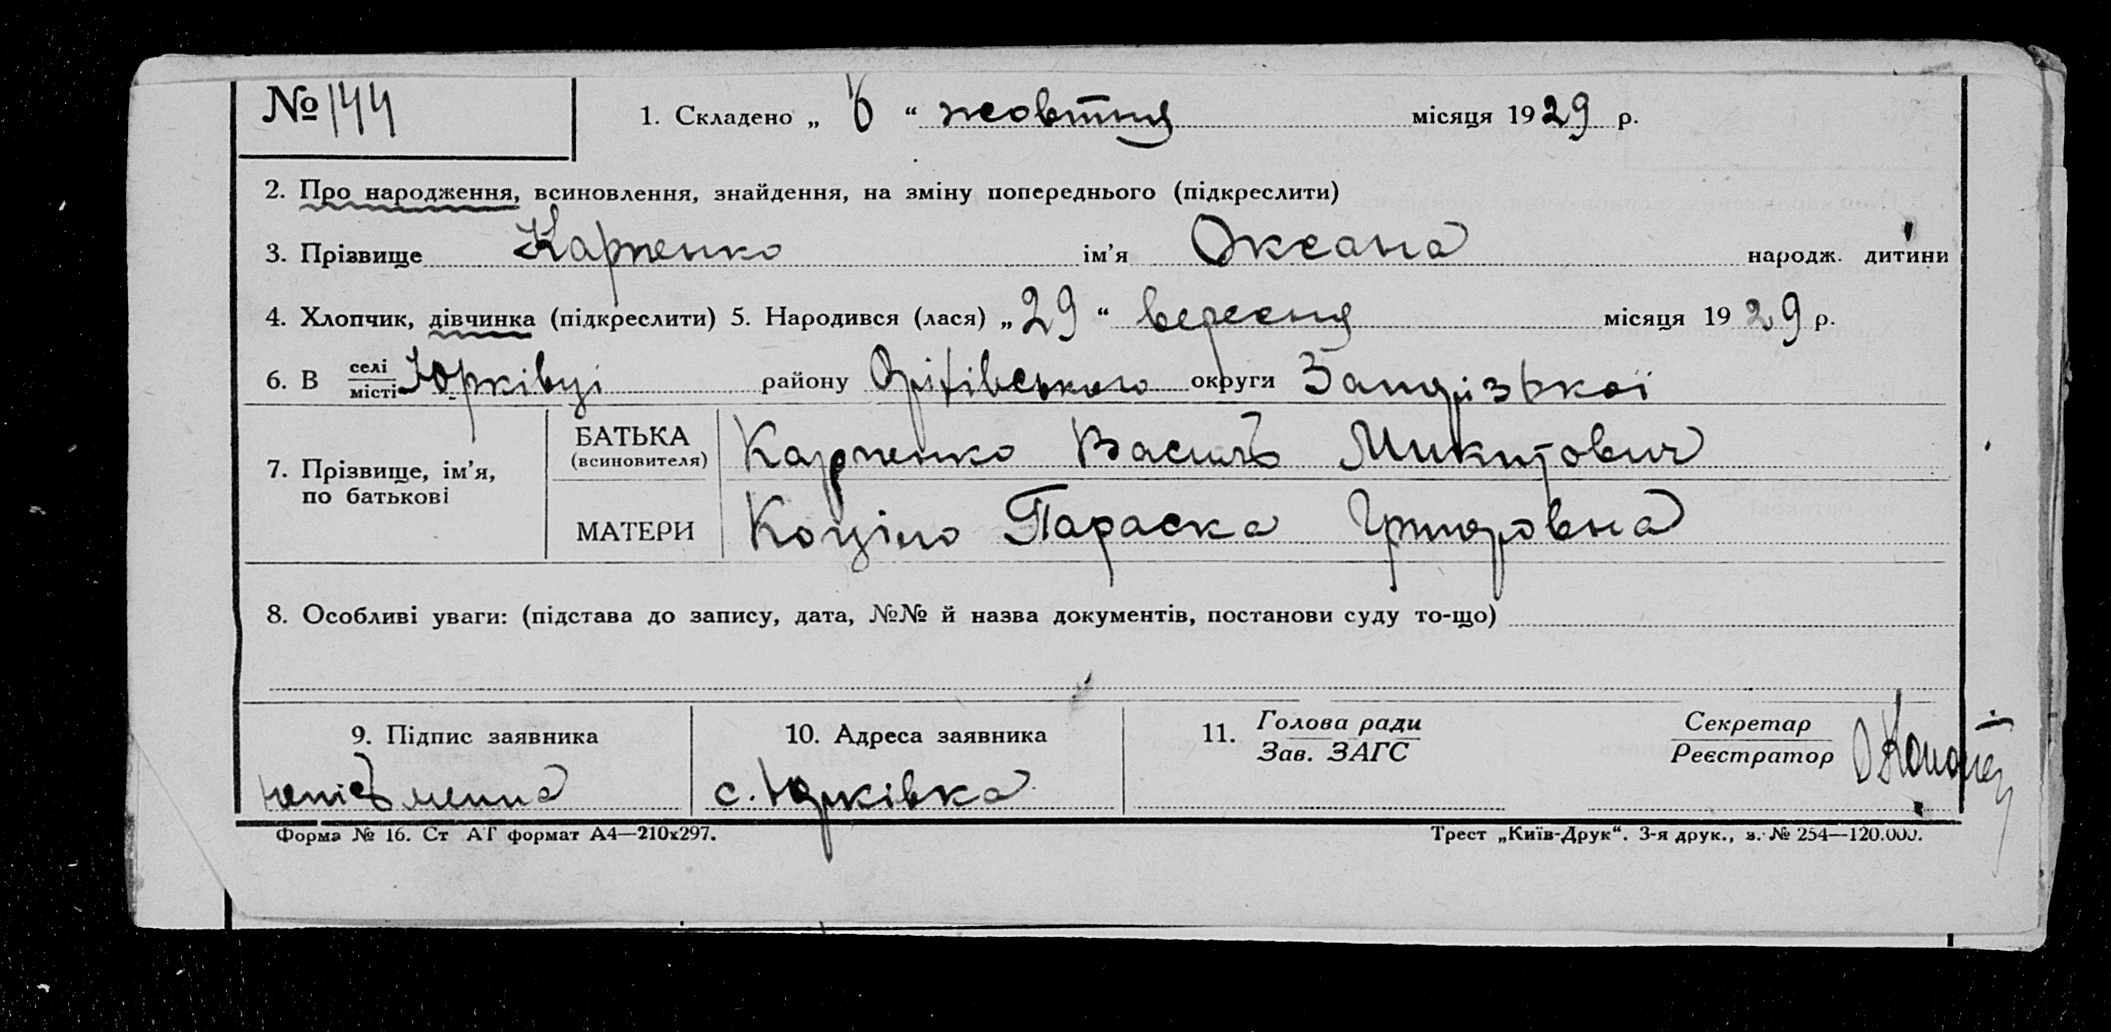 № 144
1. Складено „ 6 “ жовтня місяця 1929 р.
2. Про народження, всиновлення, знайдення, на зміну попереднього (підкреслити)
3. Прізвище Карпенко ім’я Оксана народж. дитини
4. Хлопчик, дівчинка (підкреслити) 5. Народився (лася) „ 29 “ вересня місяця 1929 р.
6. В селі Юрківці району Оріхівського округи Запорізької
місті
7. Прізвище, ім’я, по батькові
БАТЬКА (всиновителя) Карпенко Василь Микитович
МАТЕРИ Параска
8. Особливі уваги: (підстава до запису, дата, №№ й назва документів, постанови суду то-що)
9. Підпис заявника
10. Адреса заявника
с. Юрківка
11. Голова ради
Зав. ЗАГС
Секретар
Реєстратор
Форма № 16. Ст АТ формат А4—210х297.
Трест „Київ-Друк“. 3-я друк., з. № 254—120.000.